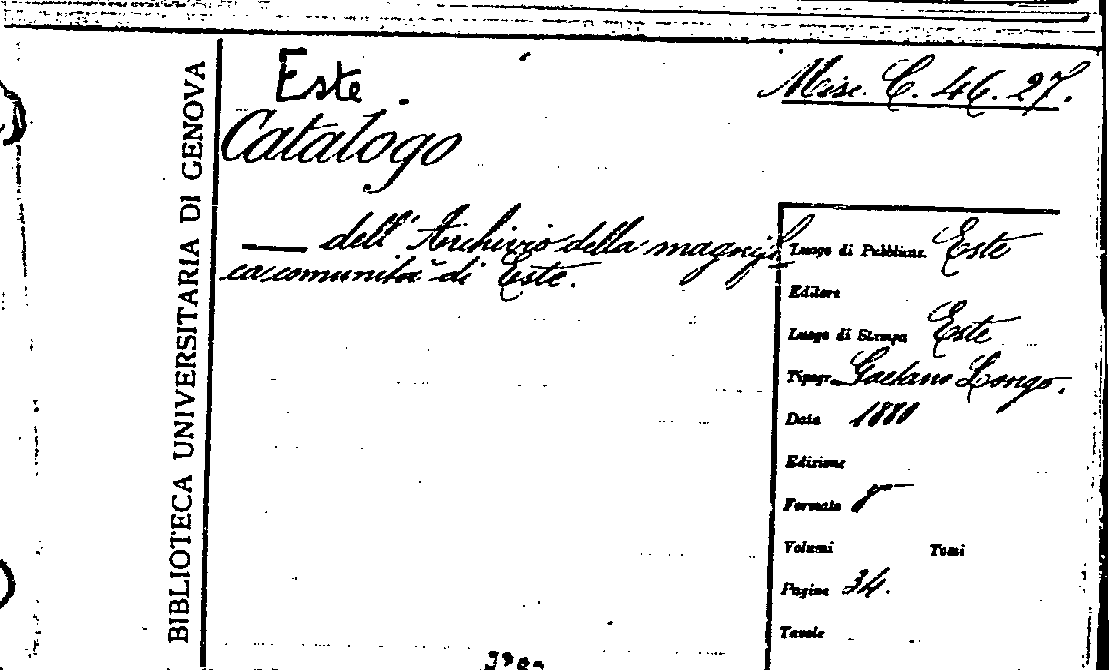 BIBLIOTECA UNIVERSITARIA DI GENOVA
Este.
Misc. C. 46. 27.
Catalogo
— dell'Archivio della magnifi
ca comunità di Este.
Luogo di Pubblicaz. Este
Editore
Luogo di Stampa Este
Tipogr. Gaetano Longo.
Data 1880
Edizione
Formato 8°
Volumi Tomi
Pagine 34.
Tavole